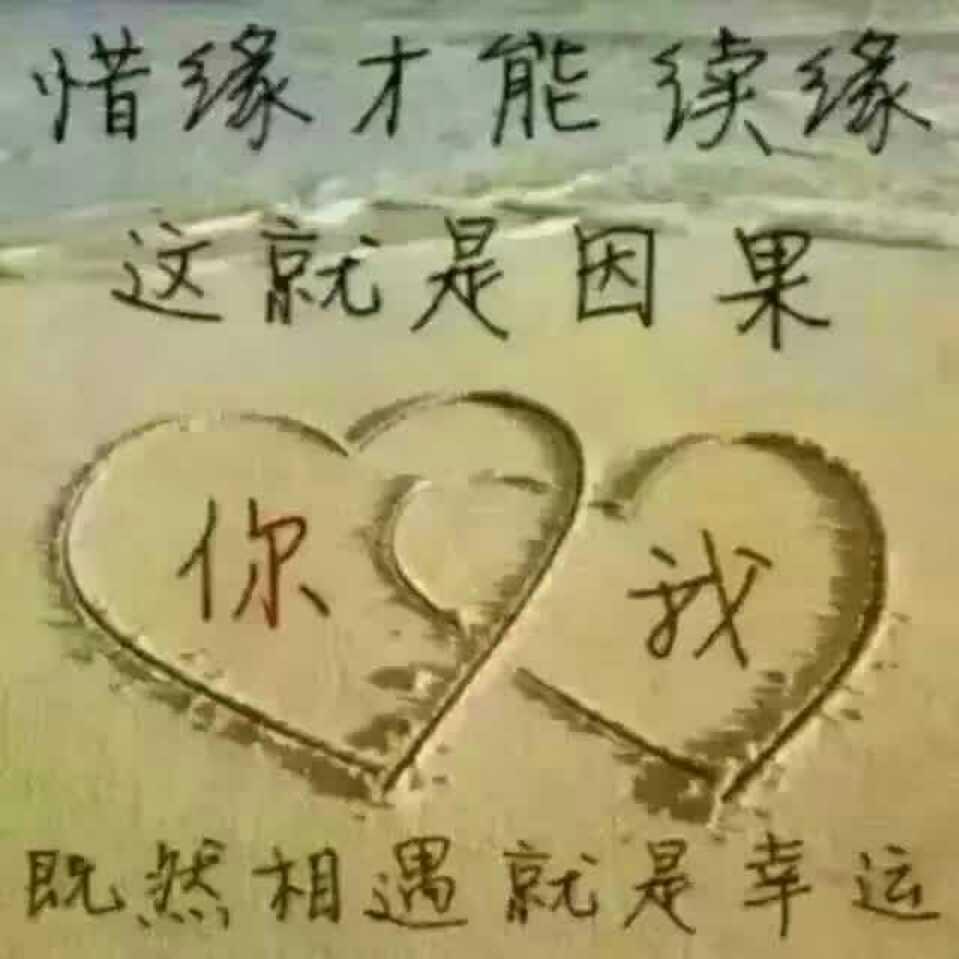 惜缘才能续缘
这就是因果
你 我
既然相遇就是幸运